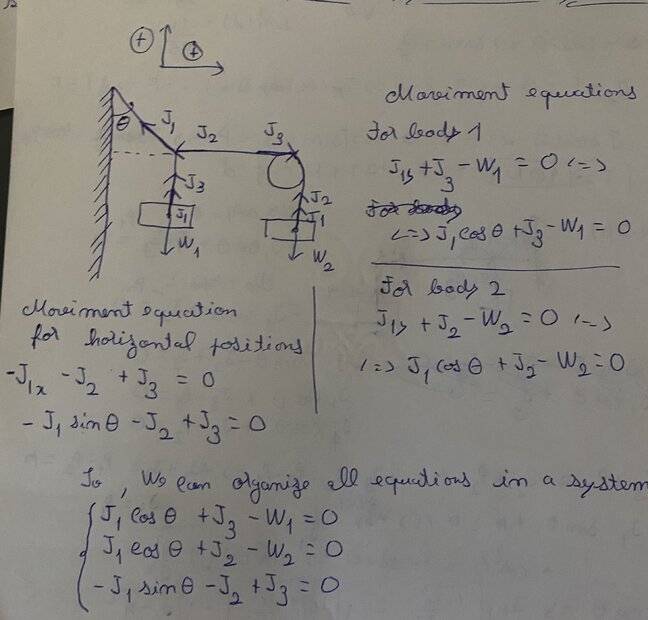 +
+
θ
J₁
J₂
J₃
J₃
J₂
J₁
J₁
W₁
W₂
Moviment equations
For body 1
J₁y + J₃ - W₁ = 0 <=>
<=> J₁ cos θ + J₃ - W₁ = 0
For body 2
J₁y + J₂ - W₂ = 0 <=>
<=> J₁ cos θ + J₂ - W₂ = 0
Moviment equation
for horizontal positions
-J₁x - J₂ + J₃ = 0
- J₁ sin θ - J₂ + J₃ = 0
So, We can organize all equations in a system
J₁ cos θ + J₃ - W₁ = 0
J₁ cos θ + J₂ - W₂ = 0
- J₁ sin θ - J₂ + J₃ = 0